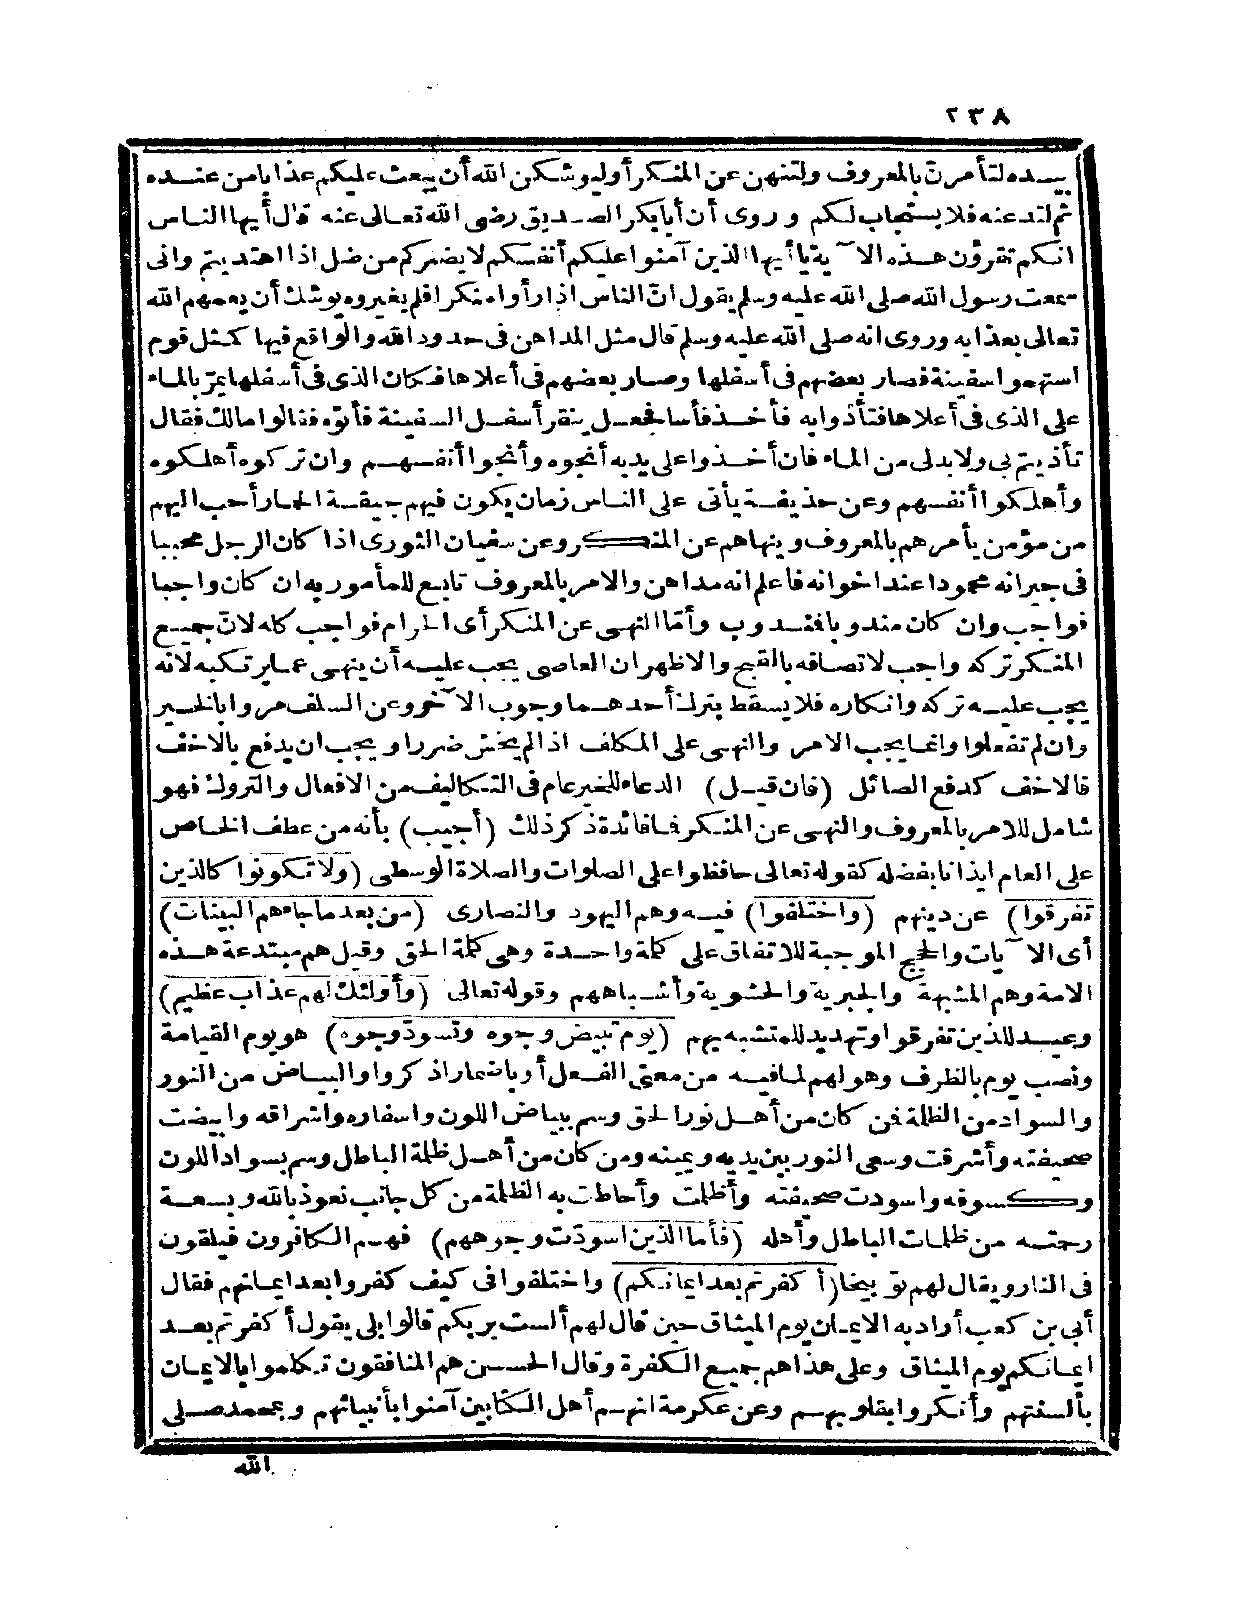 ٢٣٨
بيده لتأمرنّ بالمعروف ولتنهن عن المنكر أوليوشكن الله أن يبعث عليكم عذابا من عنده
ثم لتدعنه فلا يستجاب لكم وروى أن أبابكر الصديق رضى الله تعالى عنه قال أيها الناس
انكم تقرؤن هذه الآية يا أيها الذين آمنوا عليكم أنفسكم لا يضركم من ضل اذا اهتديتم وانى
سمعت رسول الله صلى الله عليه وسلم يقول انّ الناس اذا رأوا منكرا فلم يغيروه يوشك أن يعمهم الله
تعالى بعذابه وروى انه صلى الله عليه وسلم قال مثل المداهن فى حدود الله والواقع فيها كمثل قوم
استهموا سفينة فصار بعضهم فى أسفلها وصار بعضهم فى أعلاها فكان الذى فى أسفلها يمرّ بالماء
على الذى فى أعلاها فتأذوا به فأخذ فأسا فجعل ينقر أسفل السفينة فأتوه فقالوا مالك فقال
تأذيتم بى ولا بد لى من الماء فان أخذوا على يديه أنجوه وأنجوا أنفسهم وان تركوه أهلكوه
وأهلكوا أنفسهم وعن حذيفة يأتى على الناس زمان يكون فيهم جيفة الحمار أحب اليهم
من مؤمن يأمرهم بالمعروف وينهاهم عن المنكر وعن سفيان الثورى اذا كان الرجل محببا
فى جيرانه محمودا عند اخوانه فاعلم انه مداهن والامر بالمعروف تابع للمأمور به ان كان واجبا
فواجب وان كان مندوبا فمندوب وأمّا النهى عن المنكر أى الحرام فواجب كله لانّ جميع
المنكر تركه واجب لاتصافه بالقبح والاظهر ان العاصى يجب عليه أن ينهى عما يرتكبه لانه
يجب عليه تركه وانكاره فلا يسقط بترك أحدهما وجوب الآخر وعن السلف مروا بالخير
وان لم تفعلوا وانما يجب الامر والنهى على المكلف اذا لم يخش ضررا ويجب ان يدفع بالاخف
فالاخف كدفع الصائل (فان قيل) الدعاء للخير عام فى التكاليف من الافعال والتروك فهو
شامل للامر بالمعروف والنهى عن المنكر فما فائدة ذكر ذلك (أجيب) بأنه من عطف الخاص
على العام ايذانا بفضله كقوله تعالى حافظوا على الصلوات والصلاة الوسطى (ولا تكونوا كالذين
تفرقوا) عن دينهم (واختلفوا) فيه وهم اليهود والنصارى (من بعد ما جاءهم البينات)
أى الآيات والحجج الموجبة للاتفاق على كلمة واحدة وهى كلمة الحق وقيل هم مبتدعة هذه
الامة وهم المشبهة والجبرية والحشوية وأشباههم وقوله تعالى (وأولئك لهم عذاب عظيم)
وعيد للذين تفرقوا وتهديد للمتشبه بهم (يوم تبيض وجوه وتسودّ وجوه) هو يوم القيامة
ونصب يوم بالظرف وهو لهم لما فيه من معنى الفعل أو باضمار اذكروا والبياض من النور
والسواد من الظلمة فمن كان من أهل نور الحق وسم ببياض اللون واسفاره واشراقه وابيضت
صحيفته وأشرقت وسعى النور بين يديه ويمينه ومن كان من أهل ظلمة الباطل وسم بسواد اللون
وكسوفه واسودت صحيفته وأظلمت وأحاطت به الظلمة من كل جانب نعوذ بالله وبسعة
رحمته من ظلمات الباطل وأهله (فأما الذين اسودّت وجوههم) فهم الكافرون فيلقون
فى النار ويقال لهم توبيخا (أكفرتم بعد ايمانكم) واختلفوا فى كيف كفروا بعد ايمانهم فقال
أبىّ بن كعب أراد به الايمان يوم الميثاق حين قال لهم ألست بربكم قالوا بلى يقول أكفرتم بعد
ايمانكم يوم الميثاق وعلى هذا هم جميع الكفرة وقال الحسن هم المنافقون تكلموا بالايمان
بألسنتهم وأنكروا بقلوبهم وعن عكرمة انهم أهل الكتابين آمنوا بأنبيائهم وبمحمد صلى
الله